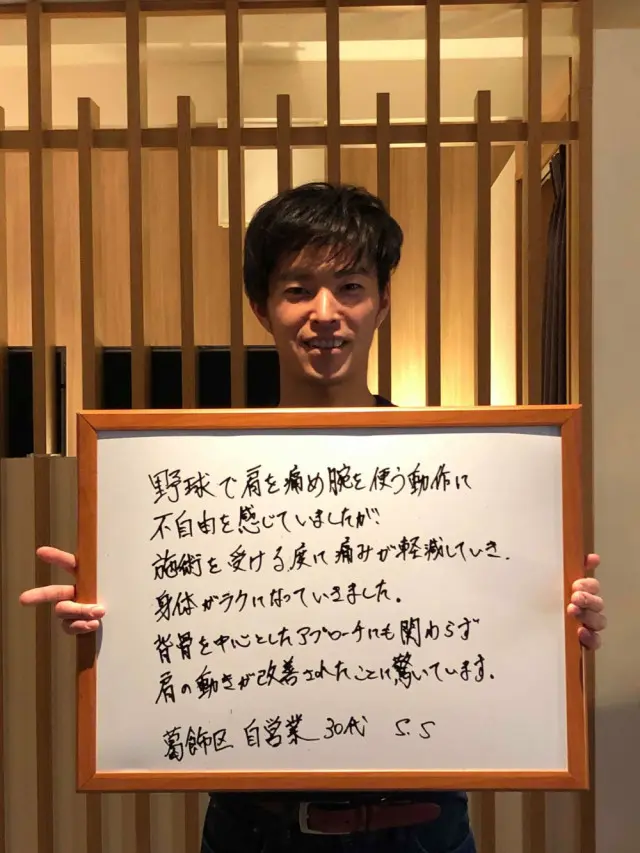 野球で肩を痛め腕を使う動作に
不自由を感じていましたが、
施術を受ける度に痛みが軽減していき、
身体がラクになっていきました。
背骨を中心としたアプローチにも関わらず
肩の動きが改善されたことに驚いています。
葛飾区 自営業 30代 S.S